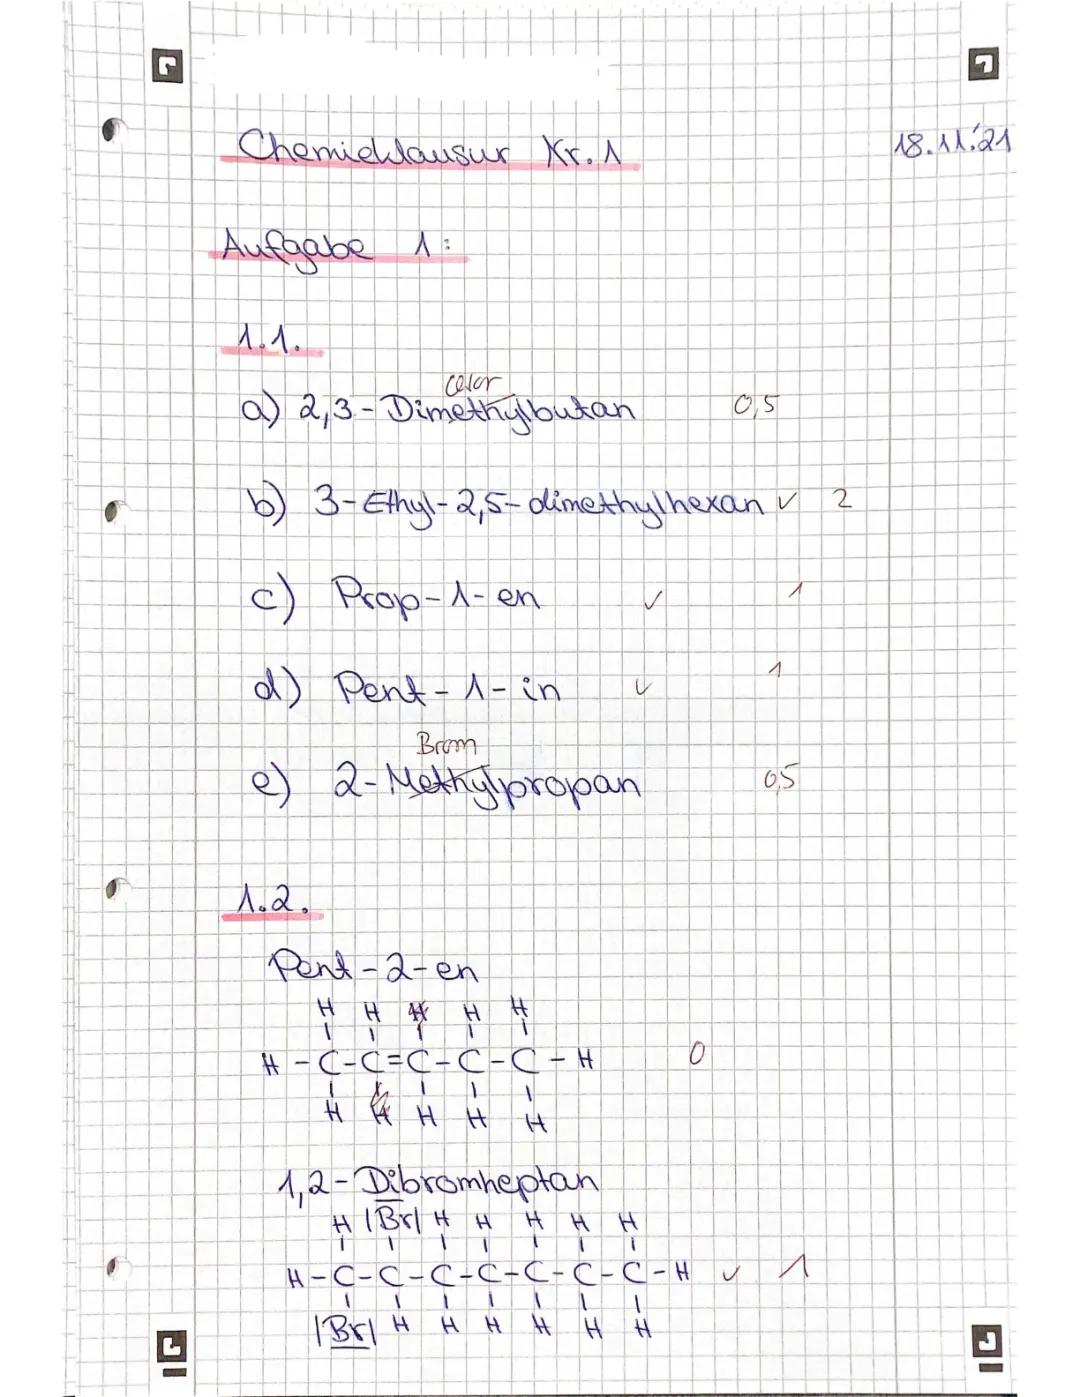 Chemieklausur Nr. 1 18.11.'21
Aufgabe 1:
1.1.
Celor
a) 2,3-Dimethylbutan 0,5
b) 3-Ethyl-2,5-dimethylhexan ✓ 2
c) Prop-1-en ✓ 1
d) Pent-1-in ✓ 1
Brom
e) 2-Methylpropan 0,5
1.2.
Pent-2-en
H H H H H
H-C-C=C-C-C-H 0
H H H H H
1,2-Dibromheptan
H |Br| H H H H H
H-C-C-C-C-C-C-C-H ✓ 1
|Br| H H H H H H